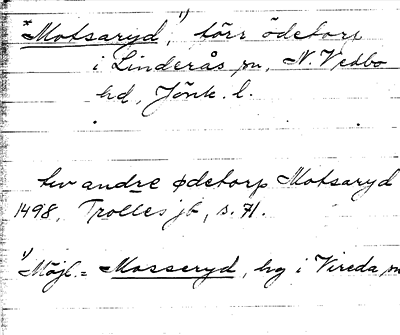 *Motsaryd,¹) förr ödetorp
i Linderås sn, N. Vedbo
hd, Jönk. l.
tw andre ødetorp Motsaryd
1498, Trolles jb, s. 71.
¹) Möjl. = Mosseryd, hg i Vireda sn